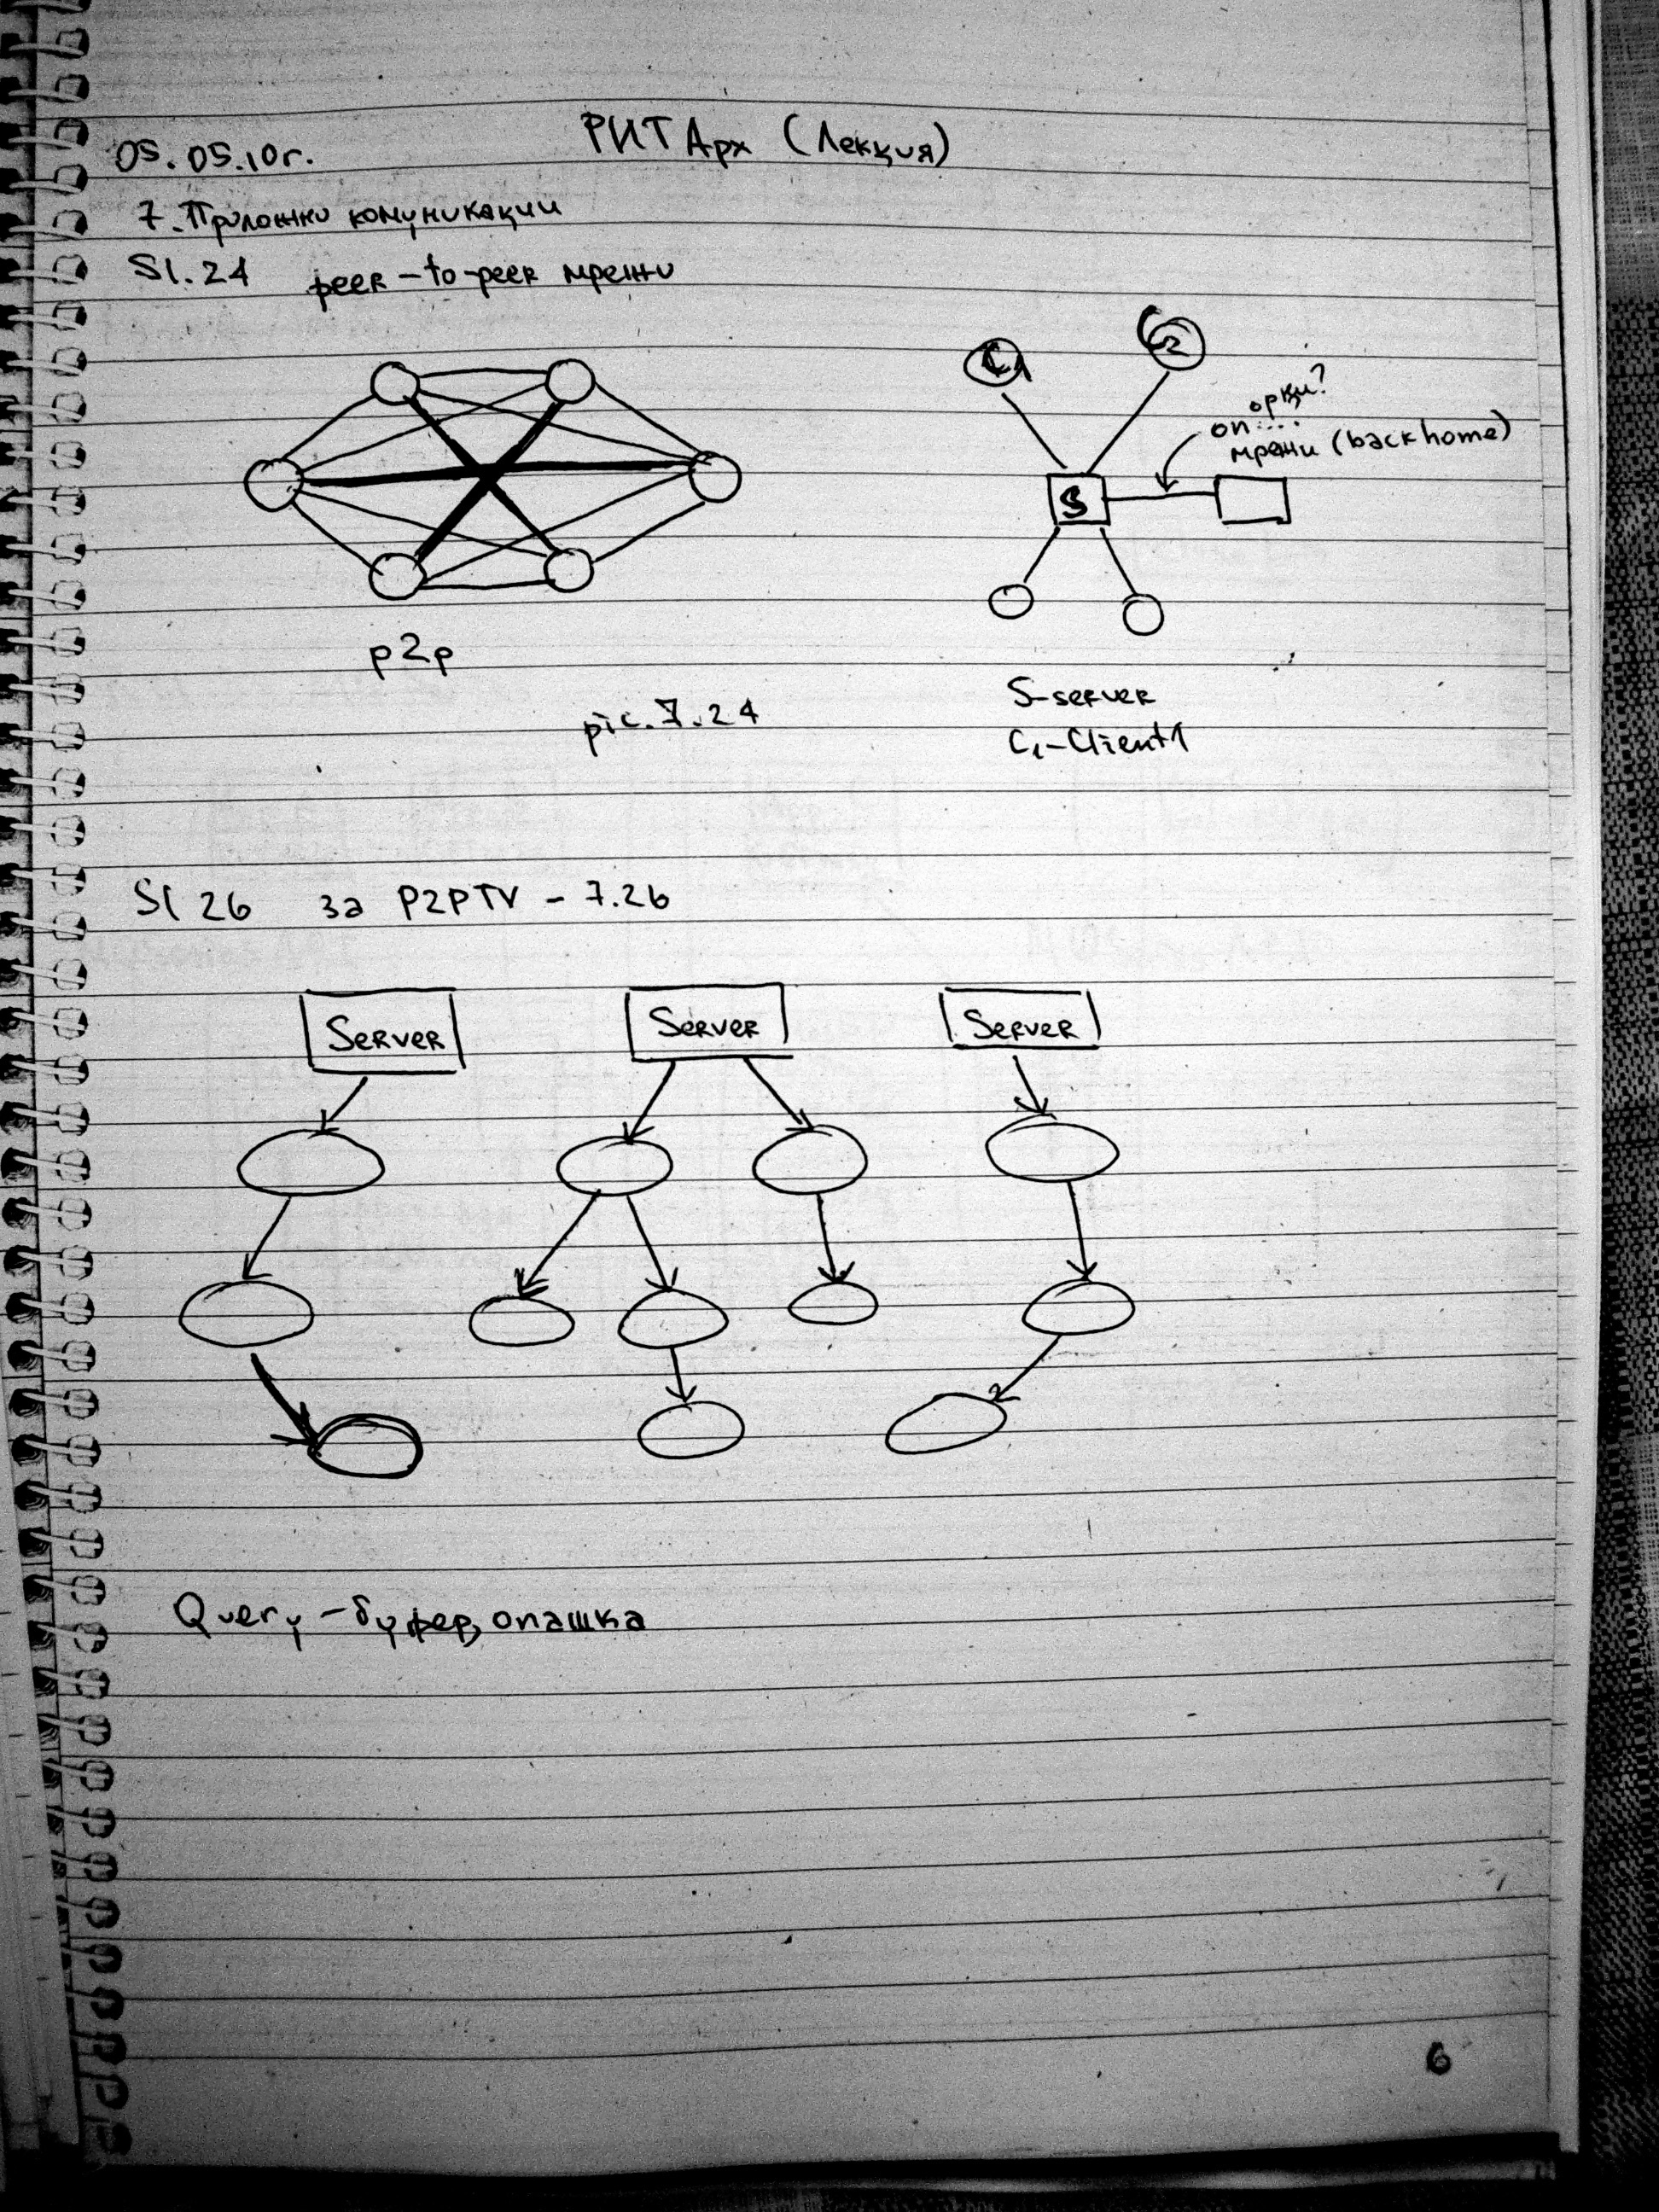 05.05.10г.
РИТ Арх (Лекция)
7. Приложни комуникации
Sl. 24 peer-to-peer мрежи
C1
C2
орки?
оп....
мрежи (backhome)
S
p2p
S-server
pic. 7.24
C1-Client1
Sl 26 за P2PTV - 7.26
Server
Server
Server
Query - буфер, опашка
6